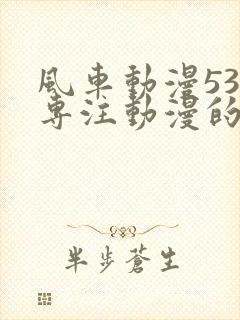 風車動漫53
專注動漫的
半步蒼生